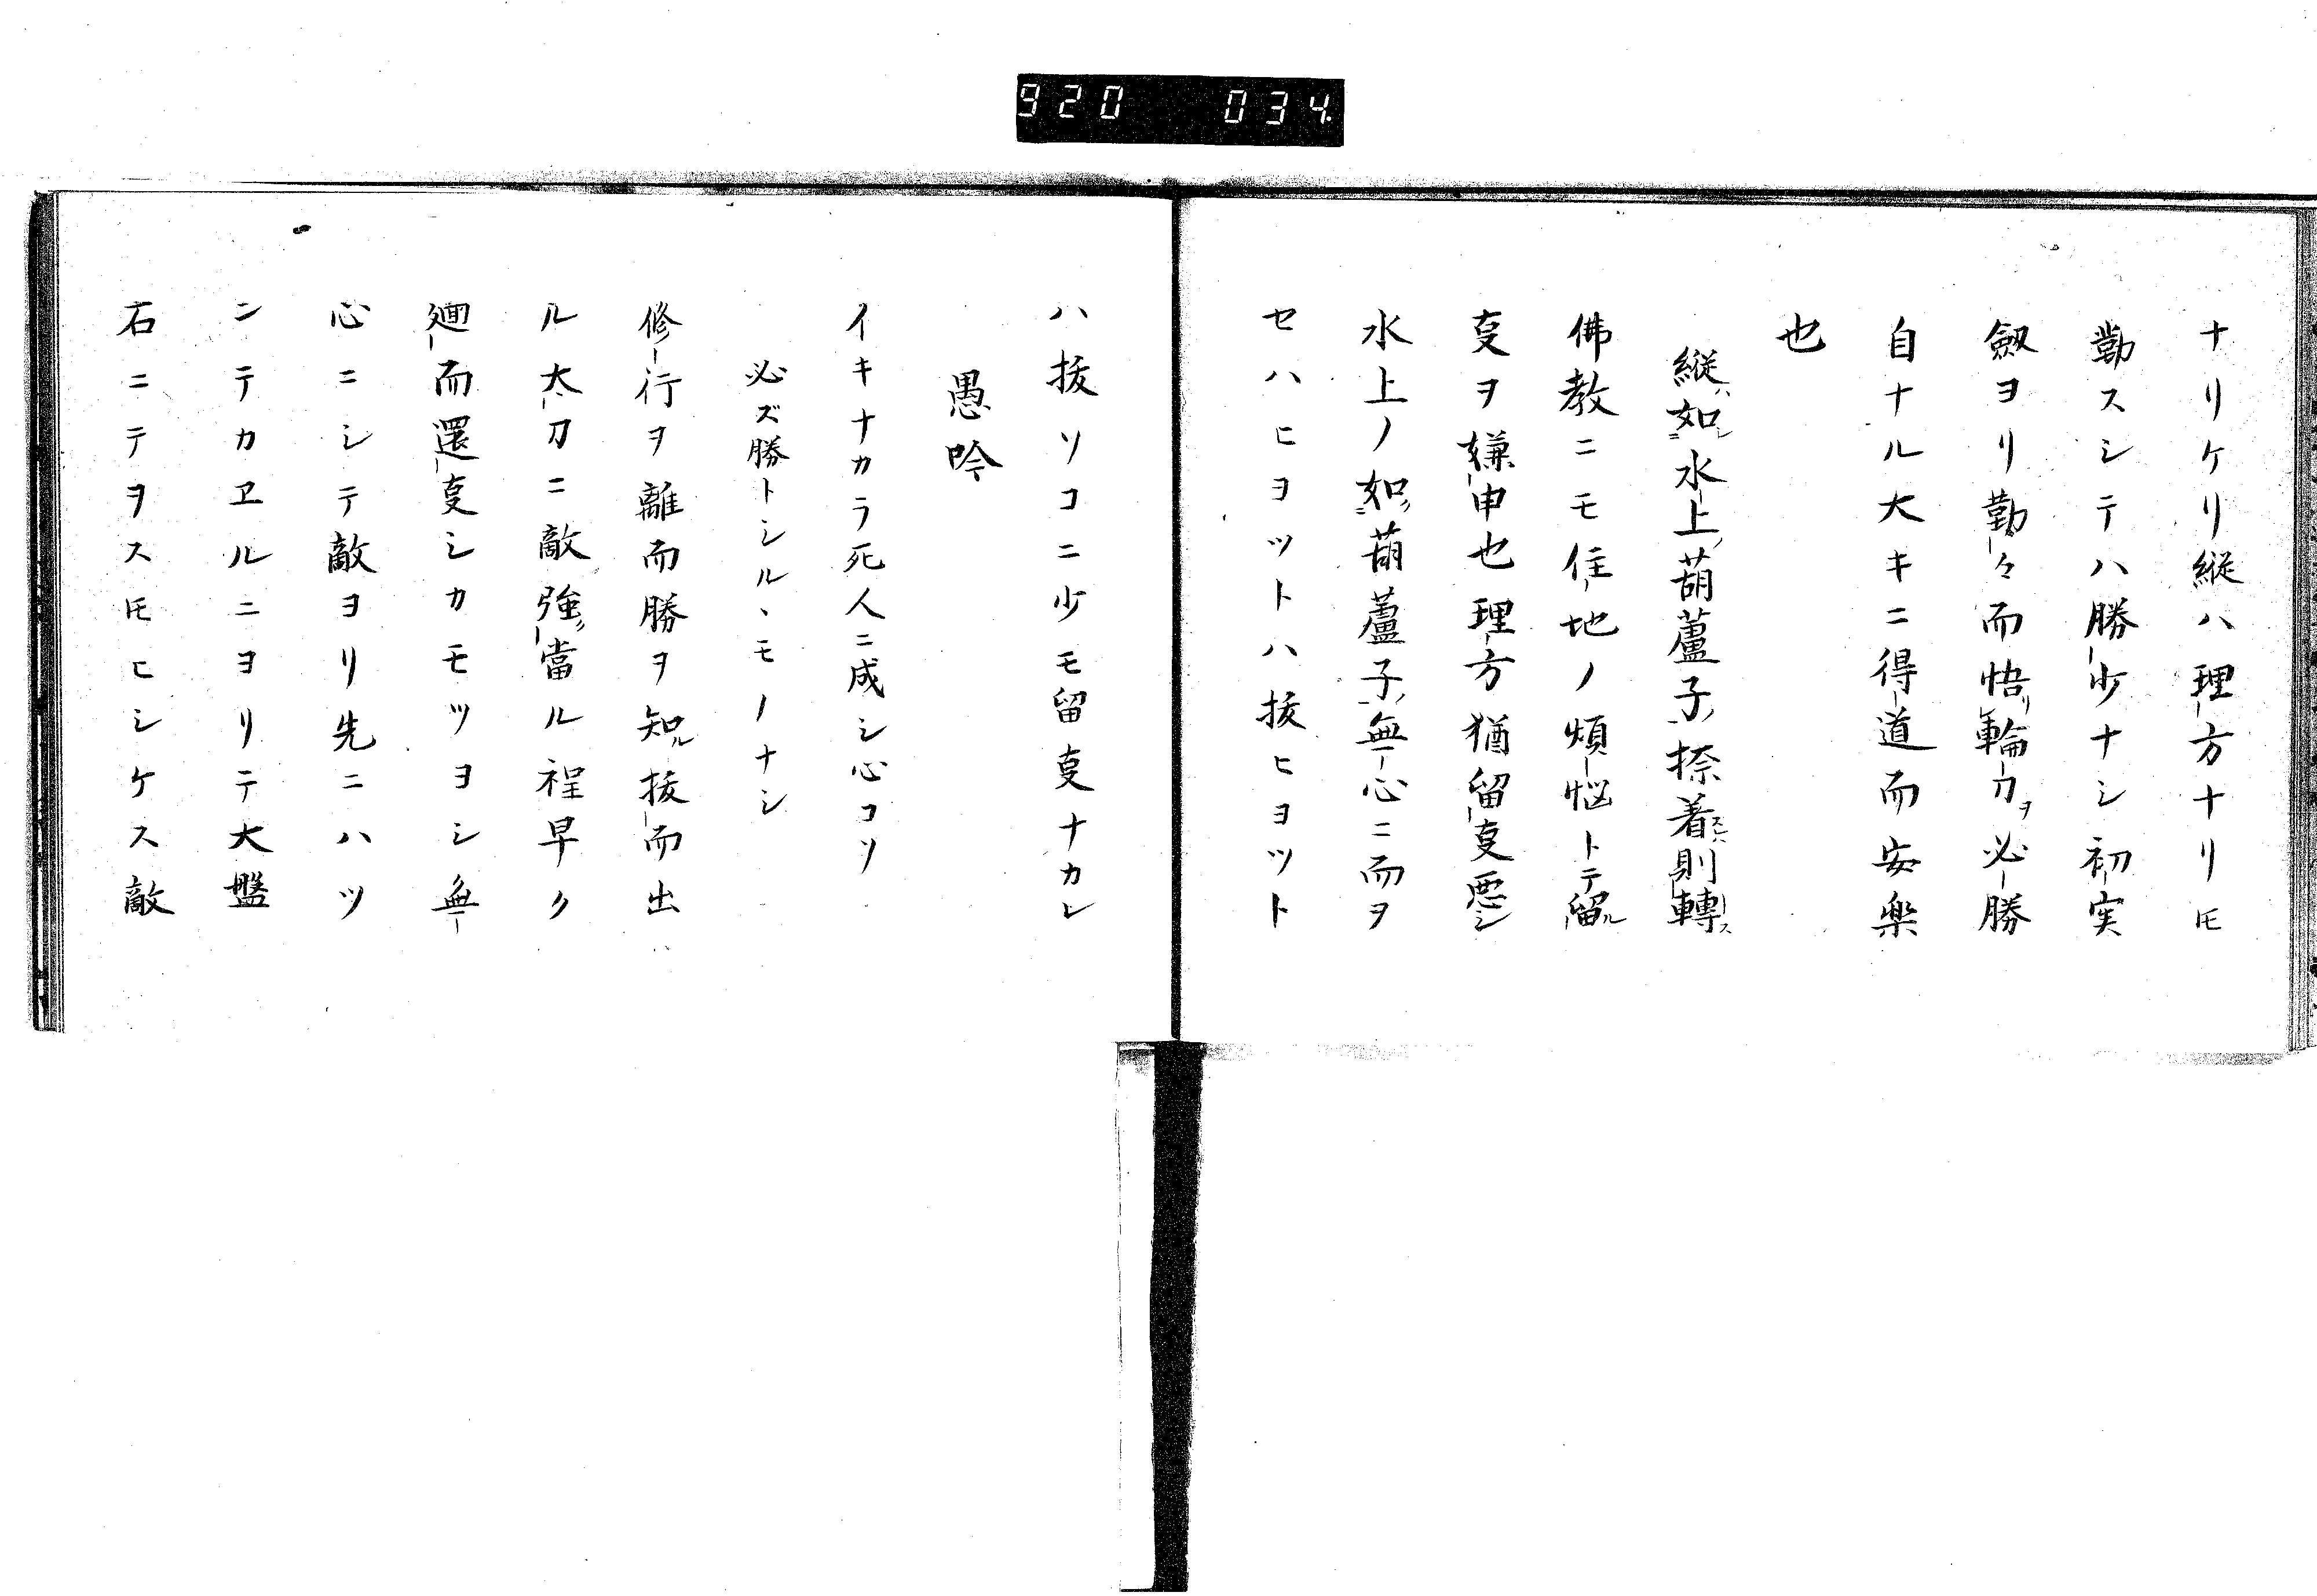 920 034
ナリケリ縦ハ理方ナリ𪜈
勤スシテハ勝少ナシ初実
劔ヨリ勤々而悟リ輪力ヲ必勝
自ナル大キニ得道而安楽
也
縦ハ如シ水上ノ葫蘆子ノ捺着スレハ則轉ス
佛教ニモ住地ノ煩悩トテ留ル
叓ヲ嫌申也理方猶留叓悪シ
水上ノ如ク葫蘆子ノ無心ニ而ヲ
セハヒヨツトハ抜ヒヨツト
ハ抜ソコニ少モ留叓ナカレ
愚吟
イキナカラ死人ニ成シ心コソ
必ズ勝トシルヽモノナシ
修行ヲ離而勝ヲ知ル抜而出
ル太刀ニ敵強ク當ル程早ク
廻而還叓シカモツヨシ無
心ニシテ敵ヨリ先ニハツ
ンテカヱルニヨリテ大盤
石ニテヲス𪜈ヒシケス敵